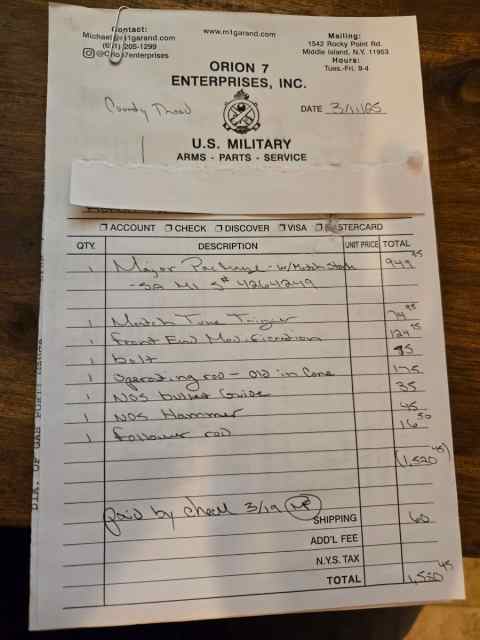 Contact:
Michael@m1garand.com
205-1299
www.m1garand.com
Mailing:
1542 Rocky Point Rd.
Middle Island, N.Y. 11953
Hours:
Tues.-Fri. 9-4
ORION 7
ENTERPRISES, INC.
DATE
U.S. MILITARY
ARMS - PARTS - SERVICE
ACCOUNT CHECK DISCOVER VISA MASTERCARD
QTY. DESCRIPTION UNIT PRICE TOTAL
1 Major Package - w/Match Stock 949.95
- SA M1 S# 4264249
1 Match Tune Trigger 74.95
1 Front End Modification 124.95
1 bolt 85
1 Operating rod - Old in Cone 175
1 NOS bullet Guide 35
1 NOS Hammer 45
1 follower rod 16.50
1,520.45
paid by check 3/19
SHIPPING 60
ADD'L FEE
N.Y.S. TAX
TOTAL 1,580.45